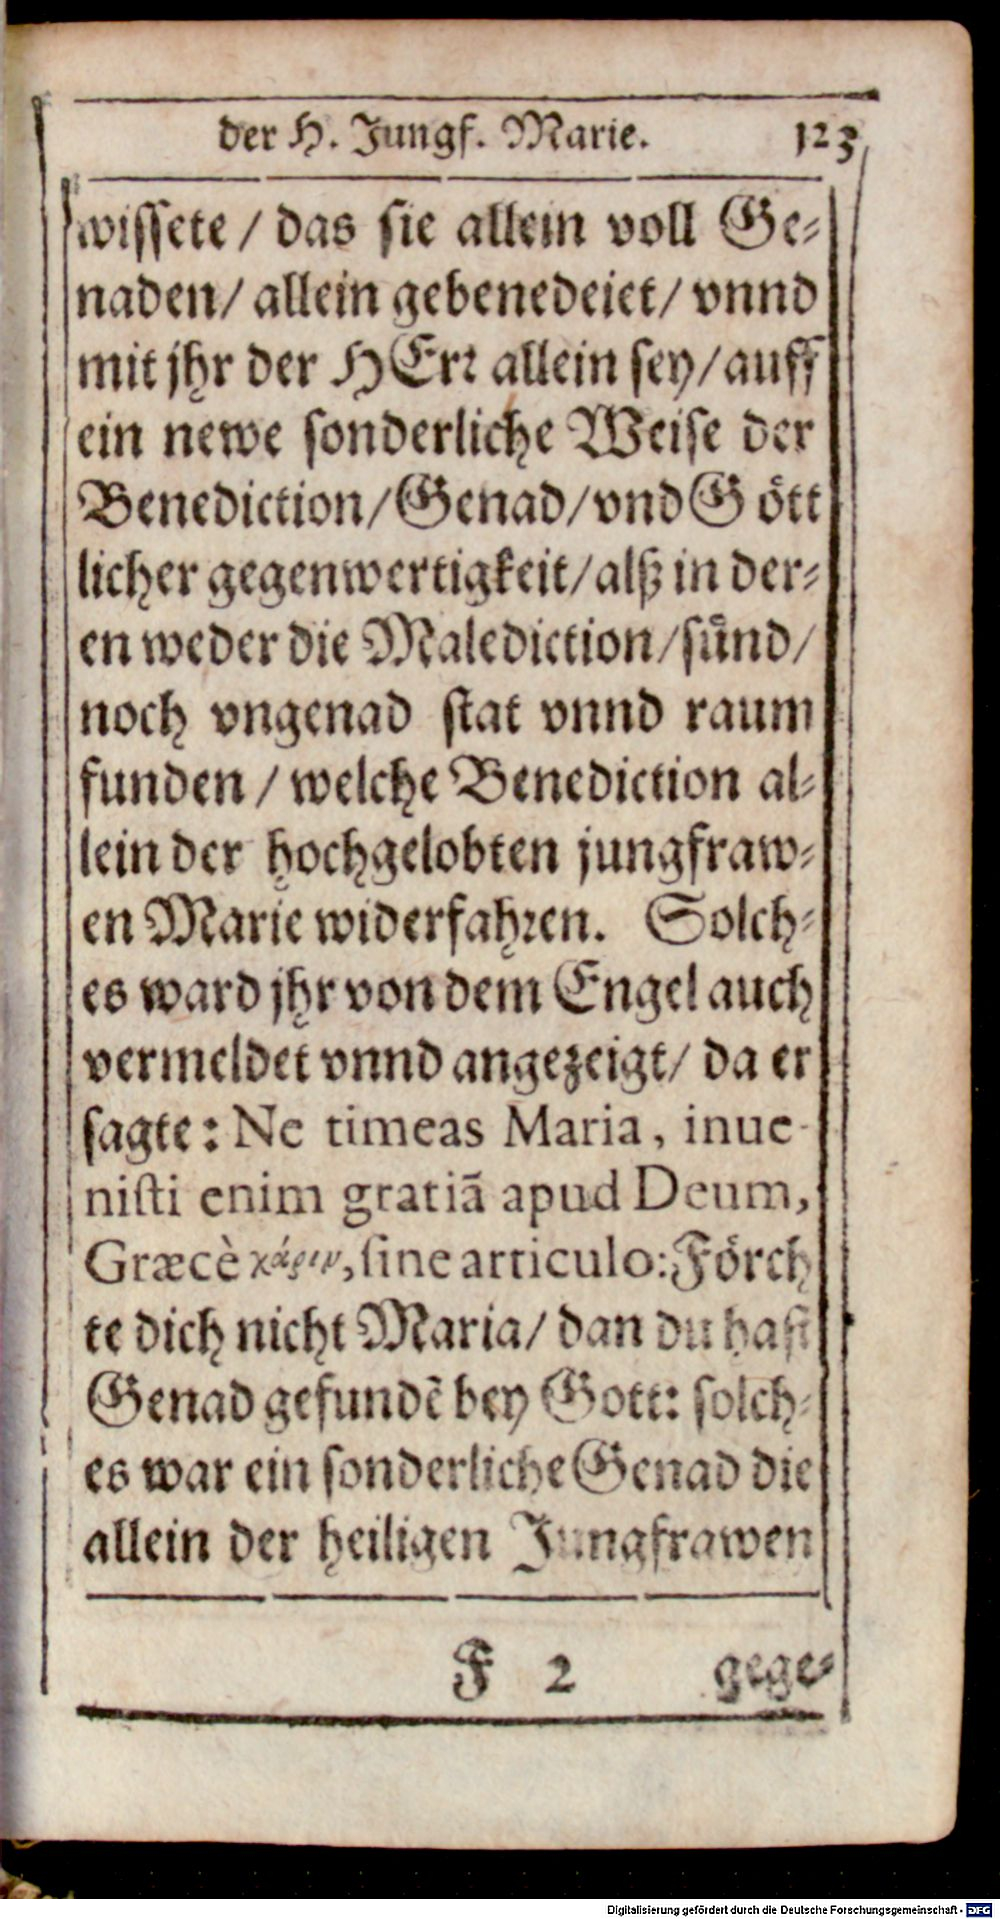 der H. Jungf. Marie. 123
wissete / das sie allein voll Ge-
naden / allein gebenedeiet / vnnd
mit jhr der HErr allein sey / auff
ein newe sonderliche Weise der
Benediction / Genad / vnd Gött
licher gegenwertigkeit / alß in der-
en weder die Malediction / sünd /
noch vngenad stat vnnd raum
funden / welche Benediction al-
lein der hochgelobten jungfraw-
en Marie widerfahren. Solch-
es ward jhr von dem Engel auch
vermeldet vnnd angezeigt / da er
sagte: Ne timeas Maria, inue-
nisti enim gratiã apud Deum,
Græcè χάριν, sine articulo: Förch
te dich nicht Maria / dan du hast
Genad gefundẽ bey Gott: solch-
es war ein sonderliche Genad die
allein der heiligen Jungfrawen
F 2 gege-
Digitalisierung gefördert durch die Deutsche Forschungsgemeinschaft - DFG